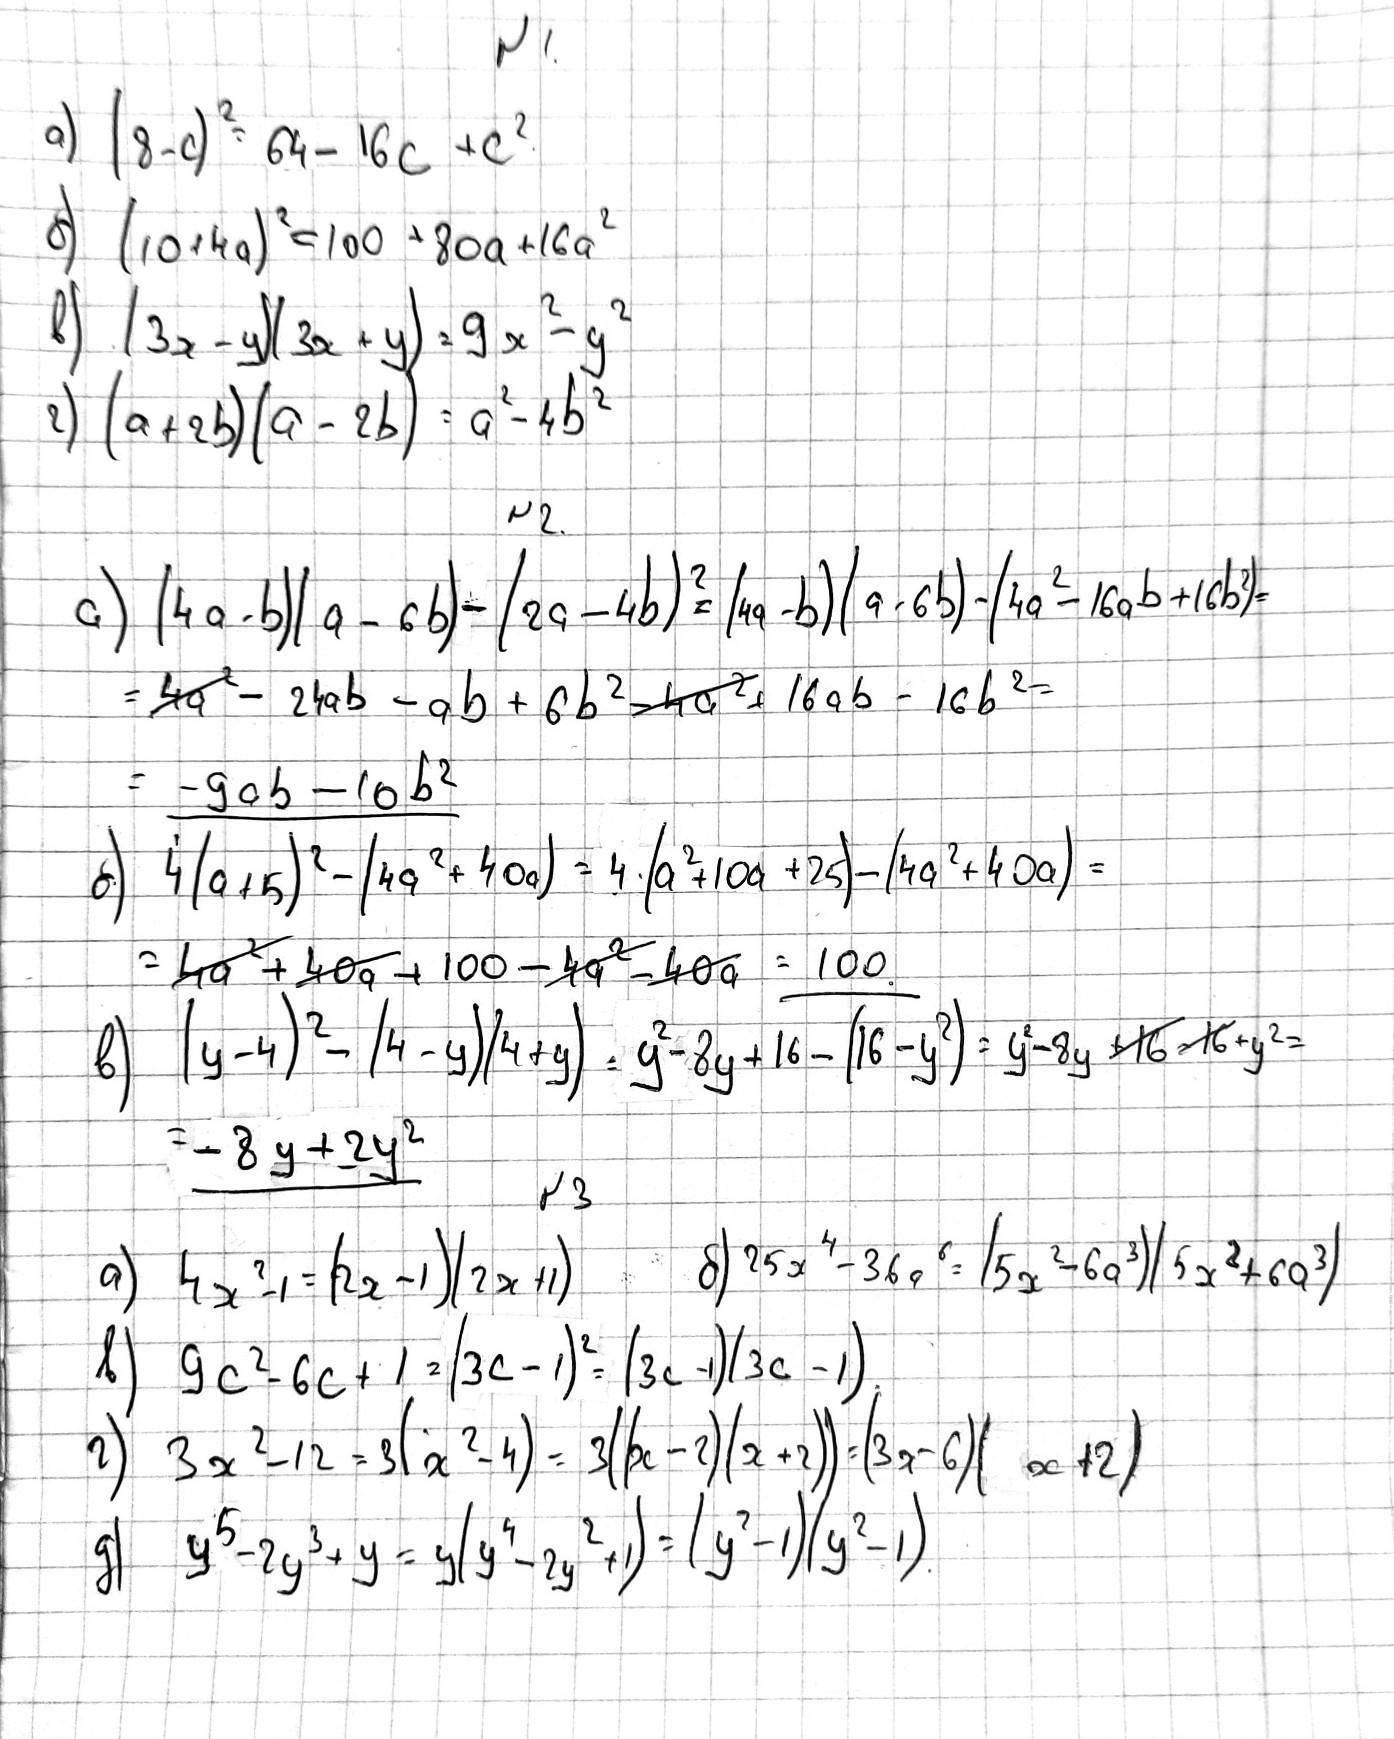 №1.
а) (8-c)² = 64 - 16c + c².
б) (10+4a)² = 100 + 80a + 16a²
в) (3x - y)(3x + y) = 9x² - y²
г) (a+2b)(a - 2b) = a² - 4b²
№2.
а) (4a - b)(a - 6b) - (2a - 4b)² = (4a - b)(a - 6b) - (4a² - 16ab + 16b²) =
= 4a² - 24ab - ab + 6b² - 4a² + 16ab - 16b² =
= -9ab - 10b²
б) 4(a+5)² - (4a² + 40a) = 4·(a² + 10a + 25) - (4a² + 40a) =
= 4a² + 40a + 100 - 4a² - 40a = 100.
в) (y - 4)² - (4 - y)(4 + y) = y² - 8y + 16 - (16 - y²) = y² - 8y + 16 - 16 + y² =
= - 8y + 2y²
№3
а) 4x² - 1 = (2x - 1)(2x + 1) б) 25x⁴ - 36a⁶ = (5x² - 6a³)(5x² + 6a³)
в) 9c² - 6c + 1 = (3c - 1)² = (3c - 1)(3c - 1).
г) 3x² - 12 = 3(x² - 4) = 3((x - 2)(x + 2)) = (3x - 6)( x + 2)
д) y⁵ - 2y³ + y = y(y⁴ - 2y² + 1) = (y² - 1)(y² - 1).